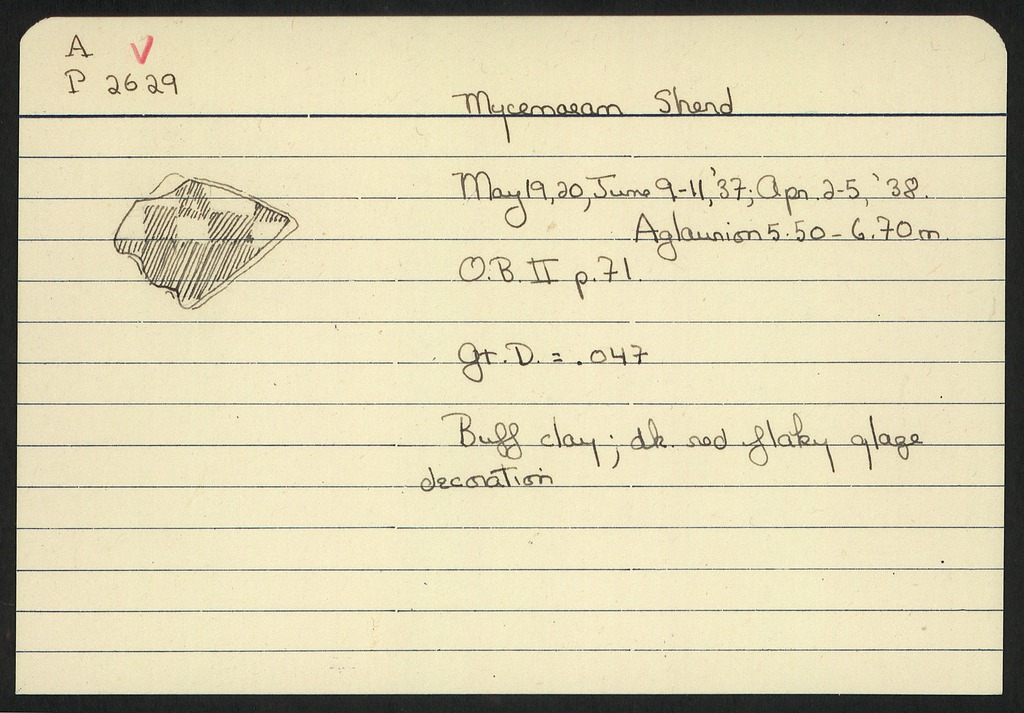 A
P 2629
Mycenaean Sherd
May 19, 20, June 9-11, '37; Apr. 2-5, '38.
Aglaurion 5.50 - 6.70 m.
O.B. II p. 71.
Gr. D. = .047
Buff clay; dk. red flaky glaze
decoration